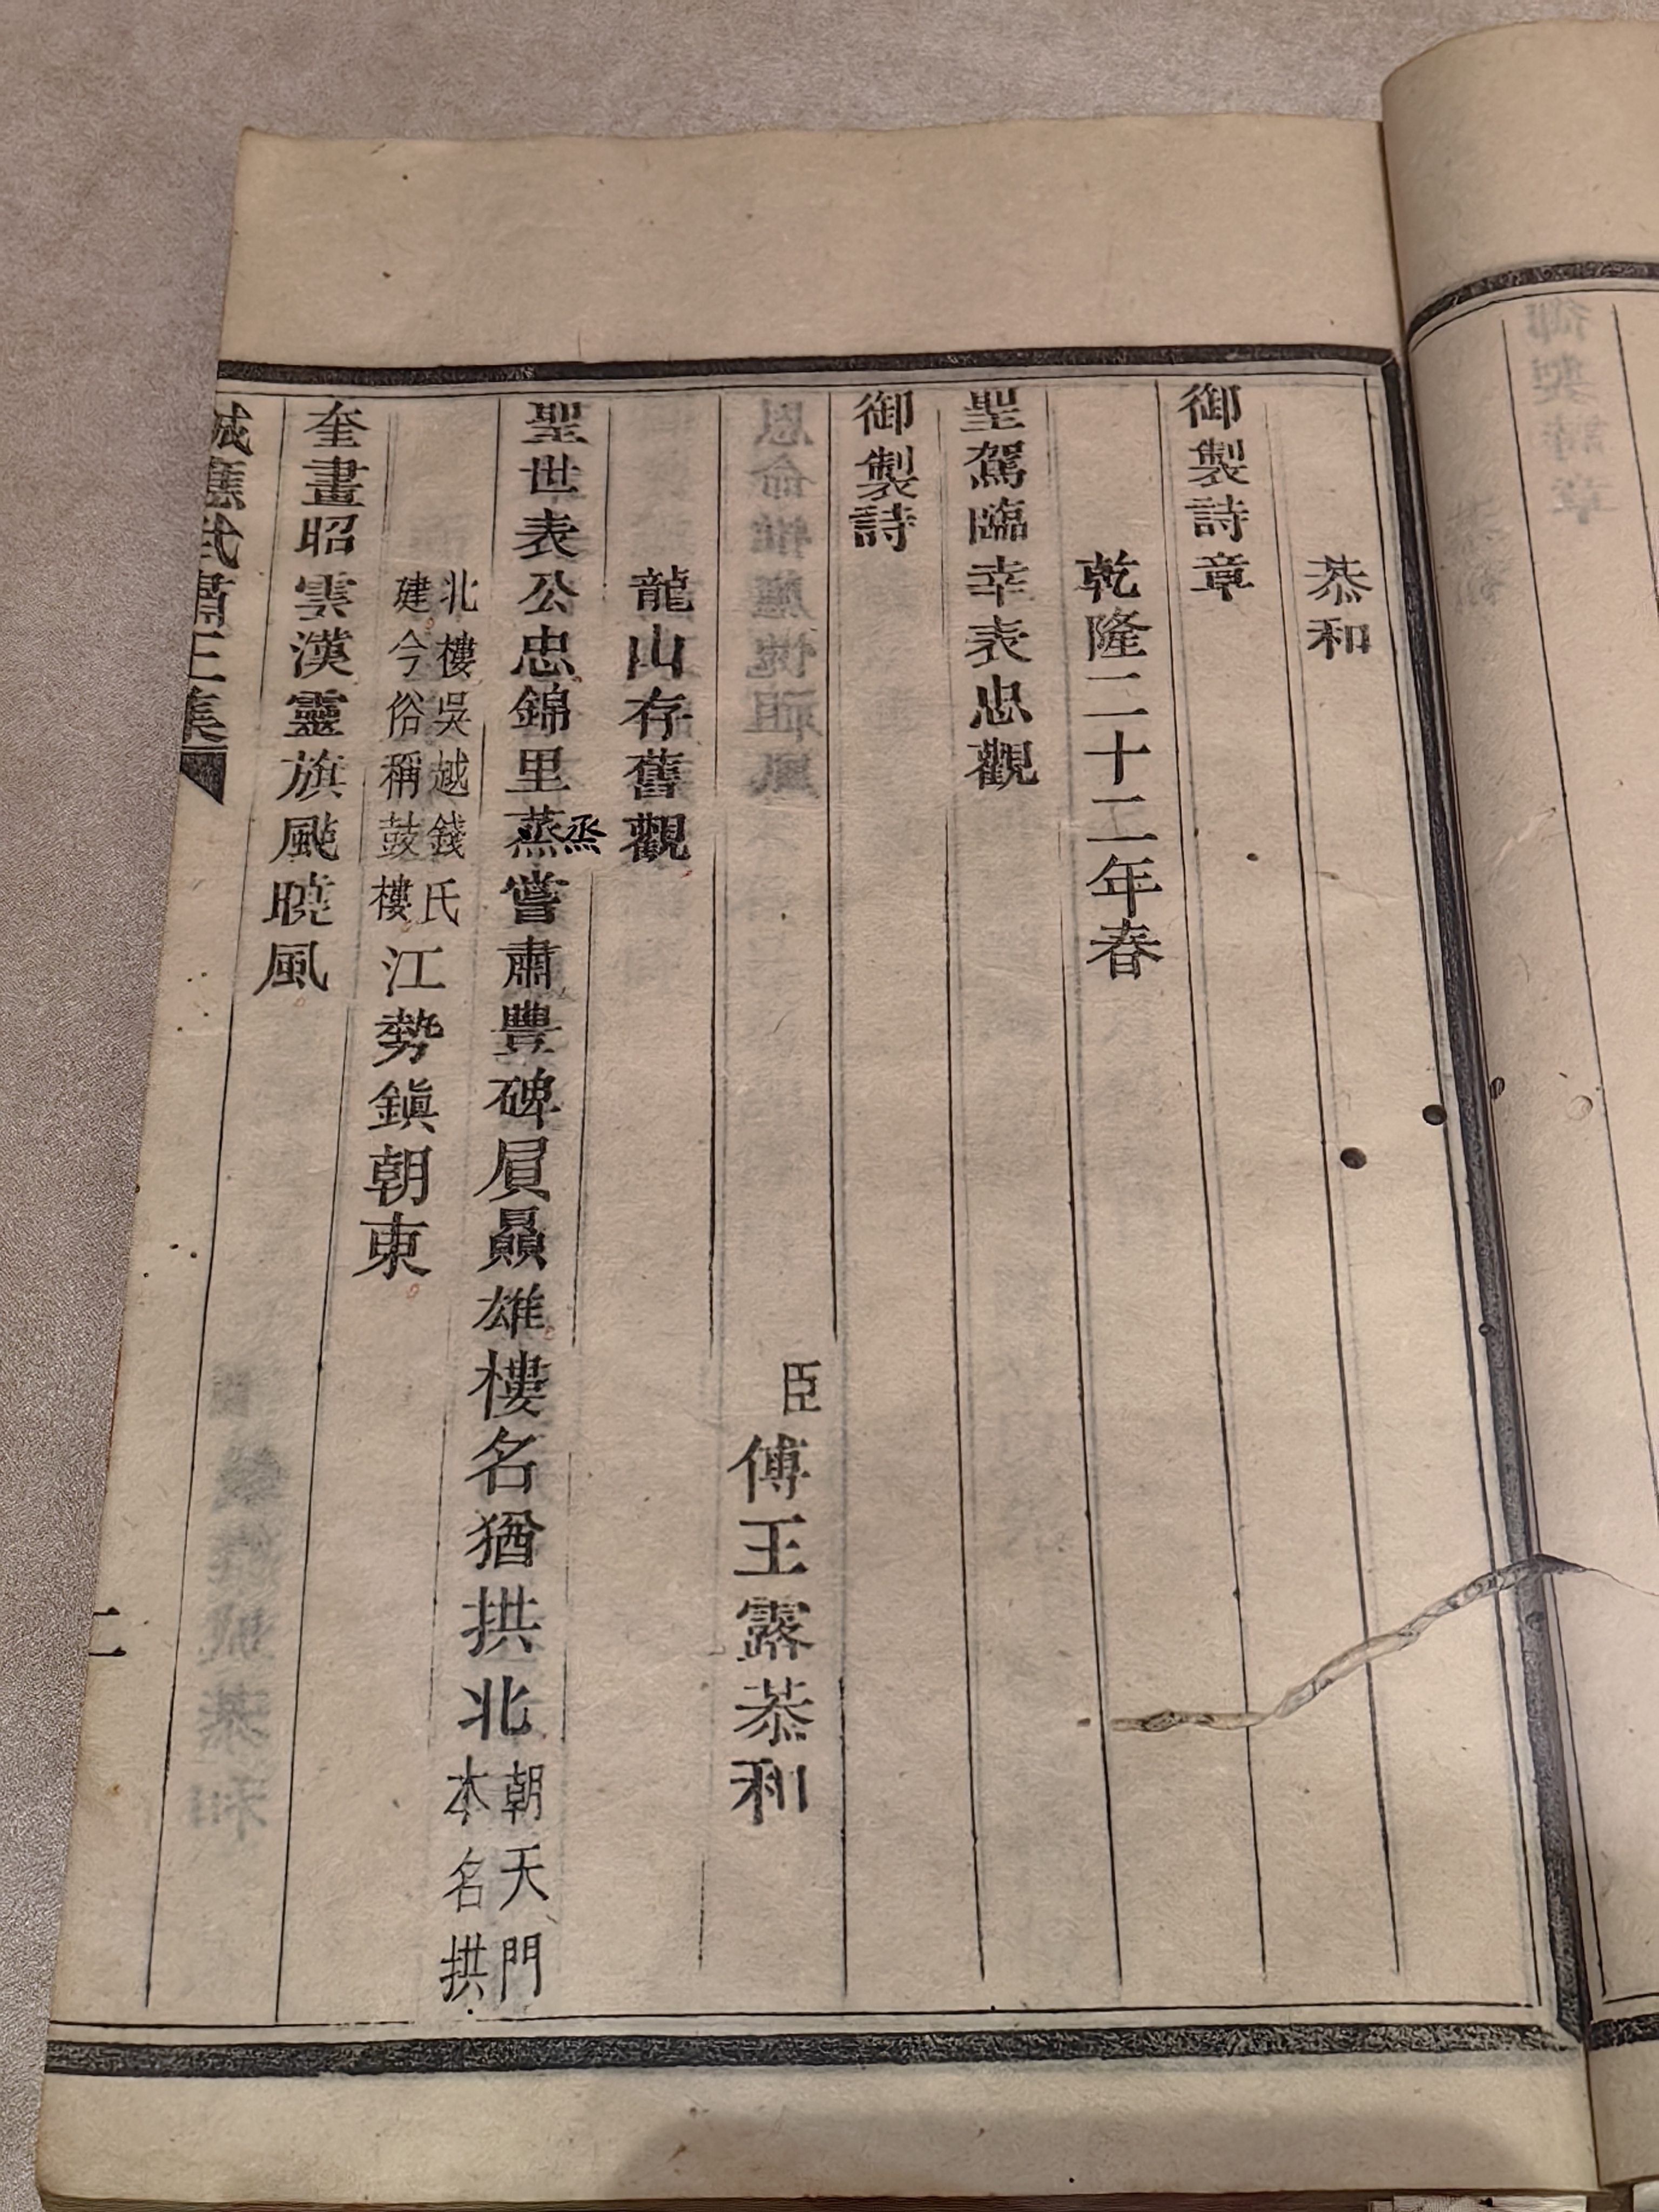 恭和
御製詩章
乾隆二十二年春
聖駕臨幸表忠觀
御製詩
臣傅王露恭和
龍山存舊觀
聖世表公忠錦里蒸嘗肅豐碑屓贔雄樓名猶拱北朝天門本名拱
烝
北樓吳越錢氏建今俗稱鼓樓江勢鎮朝東
奎畫昭雲漢靈旗颭曉風
誠應武肅王集
二